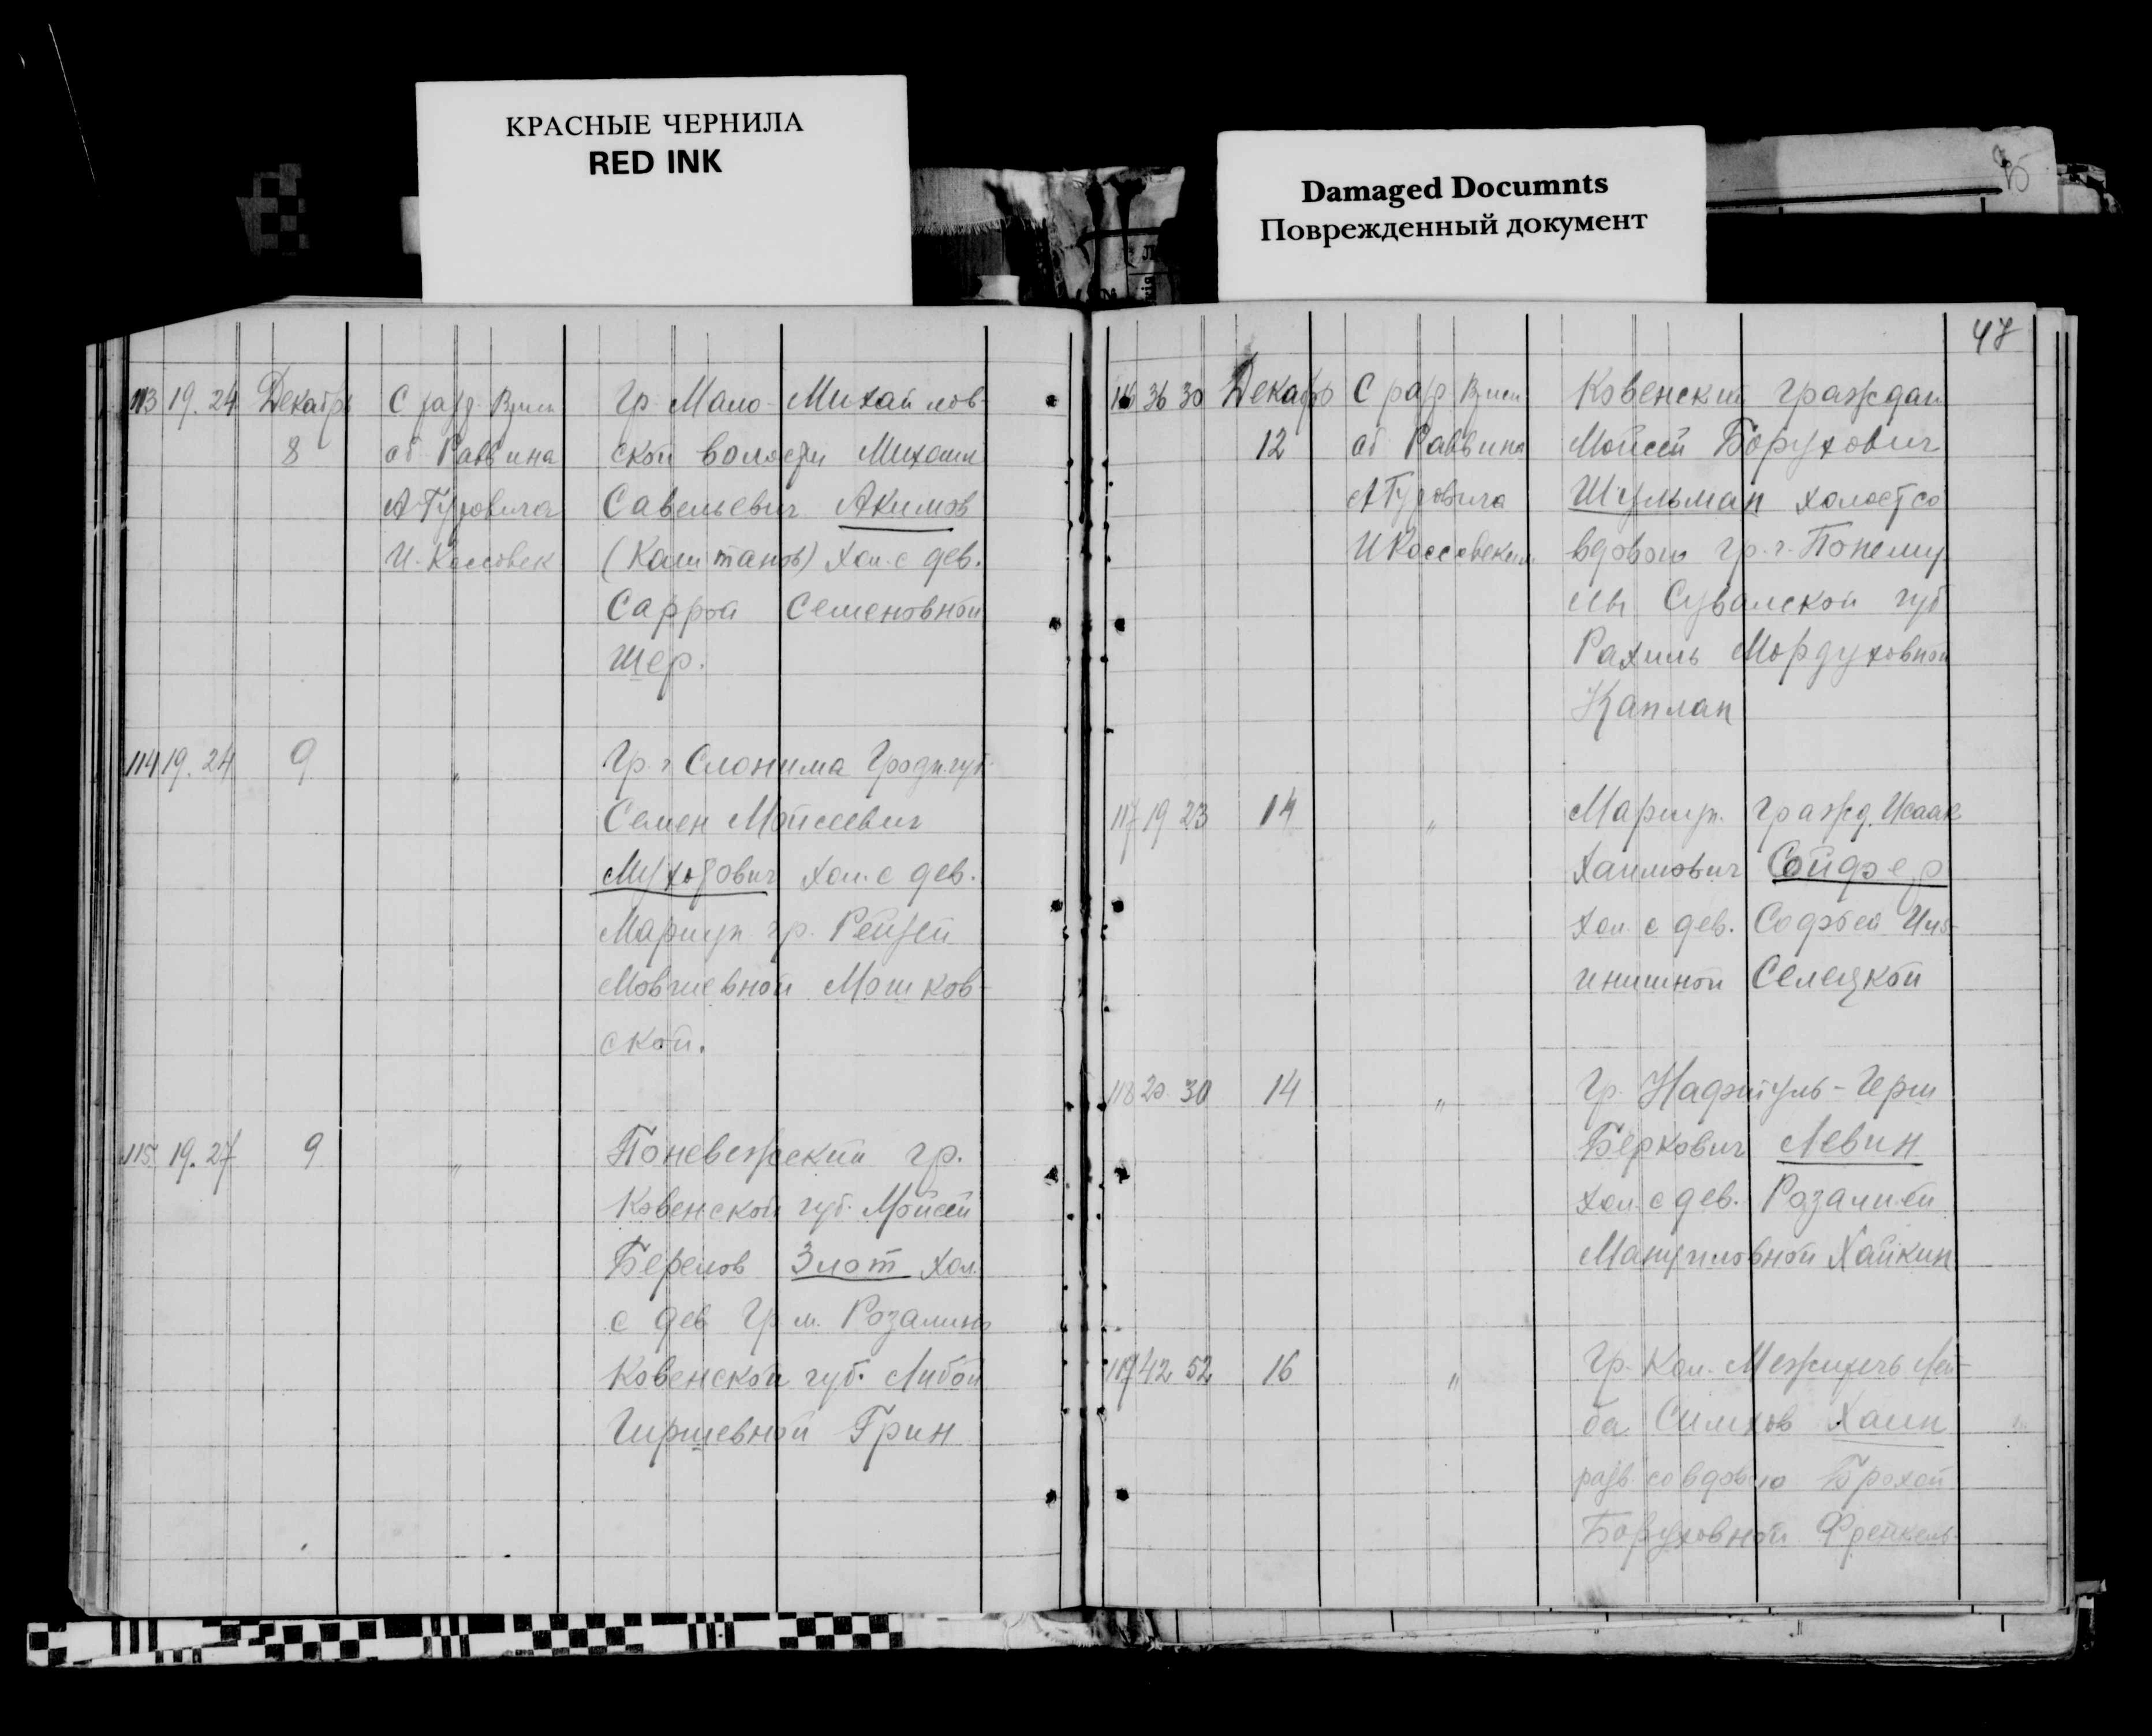 КРАСНЫЕ ЧЕРНИЛА
RED INK
Damaged Documnts
Поврежденный документ
113 19. 24 Декабрь С разр. Гр. Мало-Михайлов-
8 об Раввина ской волости Михаил
А. Гуровича Савельевич Акимов
И. Коссовск (Каштанов) хол. с дев.
Саррой Семеновной
Шер.
114 19. 24 9 „ Гр. г. Слонима Гродн. губ.
Семен Мойсеевич
хол. с дев.
Мариуп. гр. Рейзей
Мовшевной Мошков-
ской.
115 19. 27 9 „ Поневежский гр.
Ковенской губ. Мойсей
Берелов Злот хол.
с дев гр. м. Розалино
Ковенской губ. Либой
Гиршевной Грин
47
116 36 30 Декабр С разр Ковенский граждан
12 об Раввина Мойсей Борухович
А Гуровича Шульман холост со
И Коссовским вдовою гр. г. Понему
нь Сувалской губ
Рахиль Мордуховной
Каплан
117 19 23 14 „ Мариуп. гражд. Исаак
Хаимович Сойфер
хол. с дев. Софьей
Селецкой
118 20. 30 14 „ Гр. Нафтуль-Герш
Беркович Левин
хол. с дев. Розалией
Мануиловной Хайкин
119 42 52 16 „ Гр. Кол. Межиречь Лей-
ба Симхов Хаин
разв. со вдовою Брохой
Боруховной Френкель